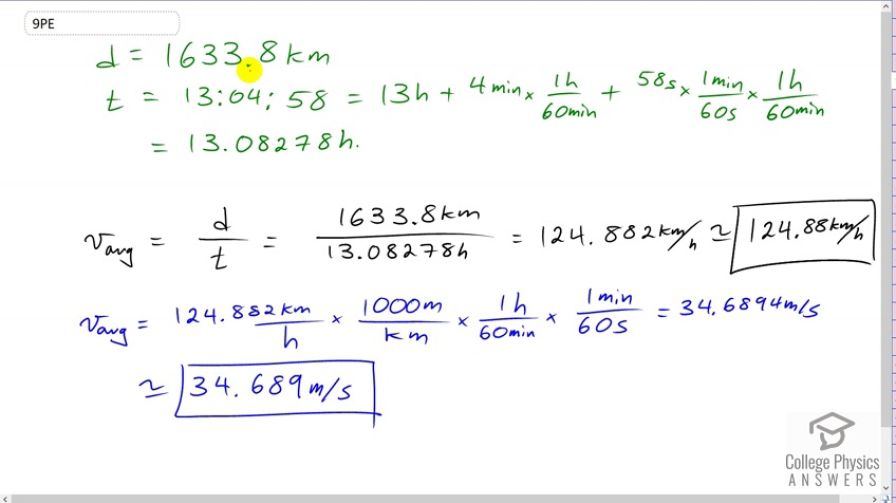 9PE
d = 1633.8 km
t = 13:04:58 = 13h + 4 min × 1h/60min + 58s × 1min/60s × 1h/60min
= 13.08278h.
v_avg = d/t = 1633.8 km/13.08278h = 124.882 km/h ≃ 124.88 km/h
v_avg = 124.882 km/h × 1000m/km × 1h/60min × 1min/60s = 34.6894 m/s
≃ 34.689 m/s
College Physics
ANSWERS